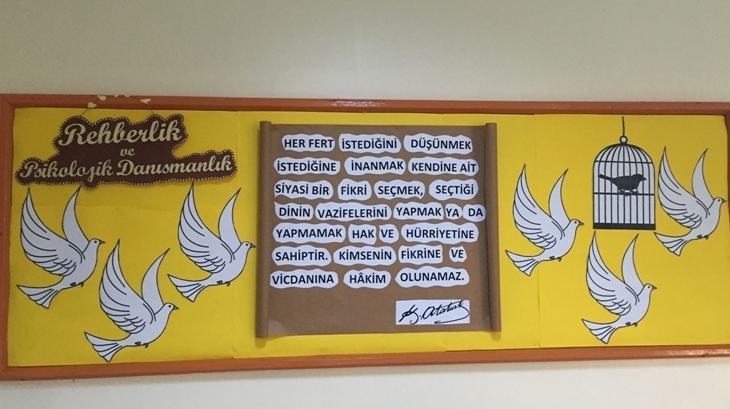 Rehberlik
ve
Psikolojik Danışmanlık
HER FERT İSTEDİĞİNİ DÜŞÜNMEK
İSTEDİĞİNE İNANMAK KENDİNE AİT
SİYASİ BİR FİKRİ SEÇMEK, SEÇTİĞİ
DİNİN VAZİFELERİNİ YAPMAK YA DA
YAPMAMAK HAK VE HÜRRİYETİNE
SAHİPTİR. KİMSENİN FİKRİNE VE
VİCDANINA HÂKİM OLUNAMAZ.
K. Atatürk